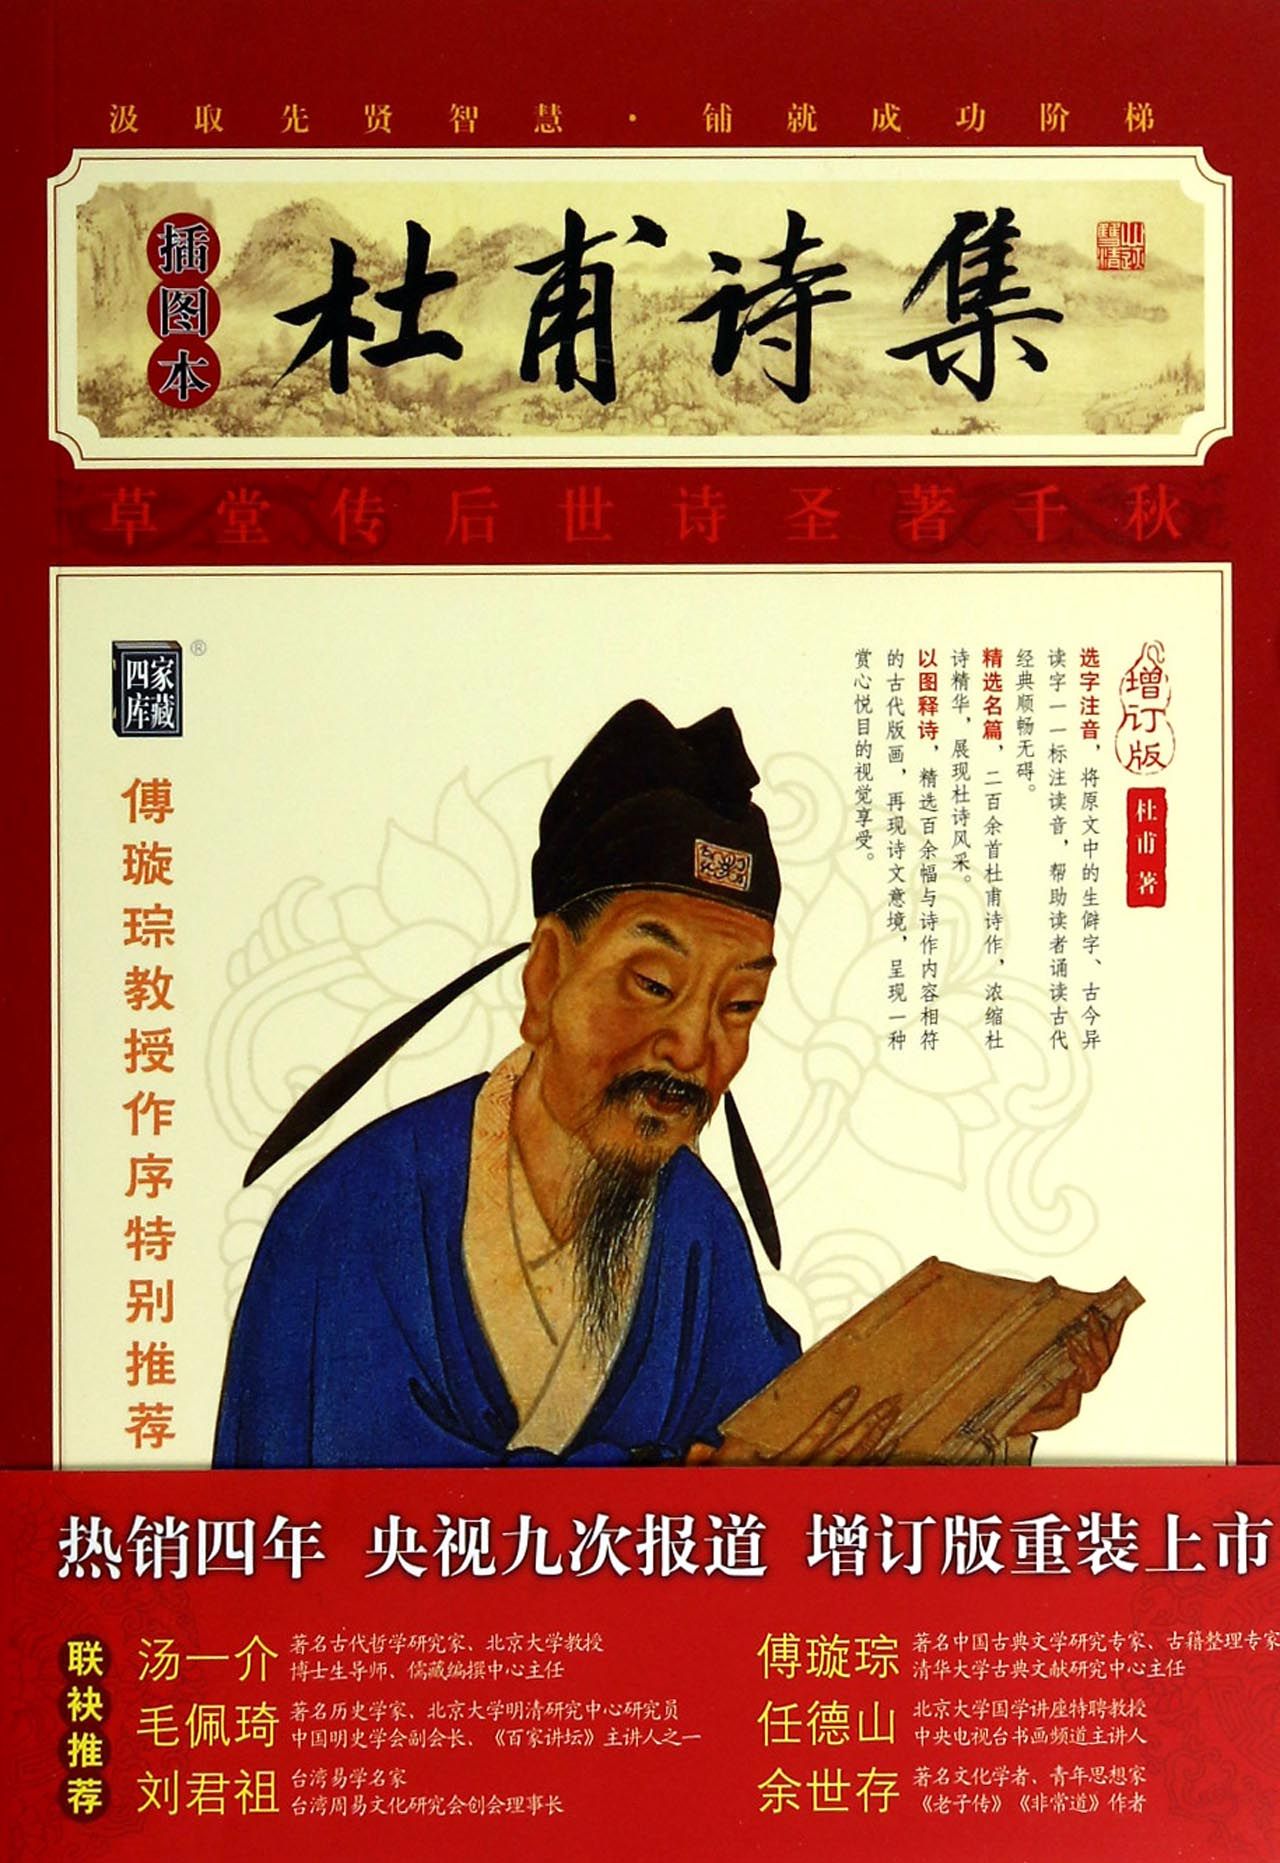 汲取先贤智慧·铺就成功阶梯
插图本
杜甫诗集
草堂传后世诗圣著千秋
家藏
四库
®
增订版
杜甫 著
选字注音，将原文中的生僻字、古今异
读字一一标注读音，帮助读者诵读古代
经典顺畅无碍。
精选名篇，二百余首杜甫诗作，浓缩杜
诗精华，展现杜诗风采。
以图释诗，精选百余幅与诗作内容相符
的古代版画，再现诗文意境，呈现一种
赏心悦目的视觉享受。
傅璇琮教授作序特别推荐
热销四年 央视九次报道 增订版重装上市
联袂推荐
汤一介
著名古代哲学研究家、北京大学教授
博士生导师、儒藏编撰中心主任
毛佩琦
著名历史学家、北京大学明清研究中心研究员
中国明史学会副会长、《百家讲坛》主讲人之一
刘君祖
台湾易学名家
台湾周易文化研究会创会理事长
傅璇琮
著名中国古典文学研究专家、古籍整理专家
清华大学古典文献研究中心主任
任德山
北京大学国学讲座特聘教授
中央电视台书画频道主讲人
余世存
著名文化学者、青年思想家
《老子传》《非常道》作者